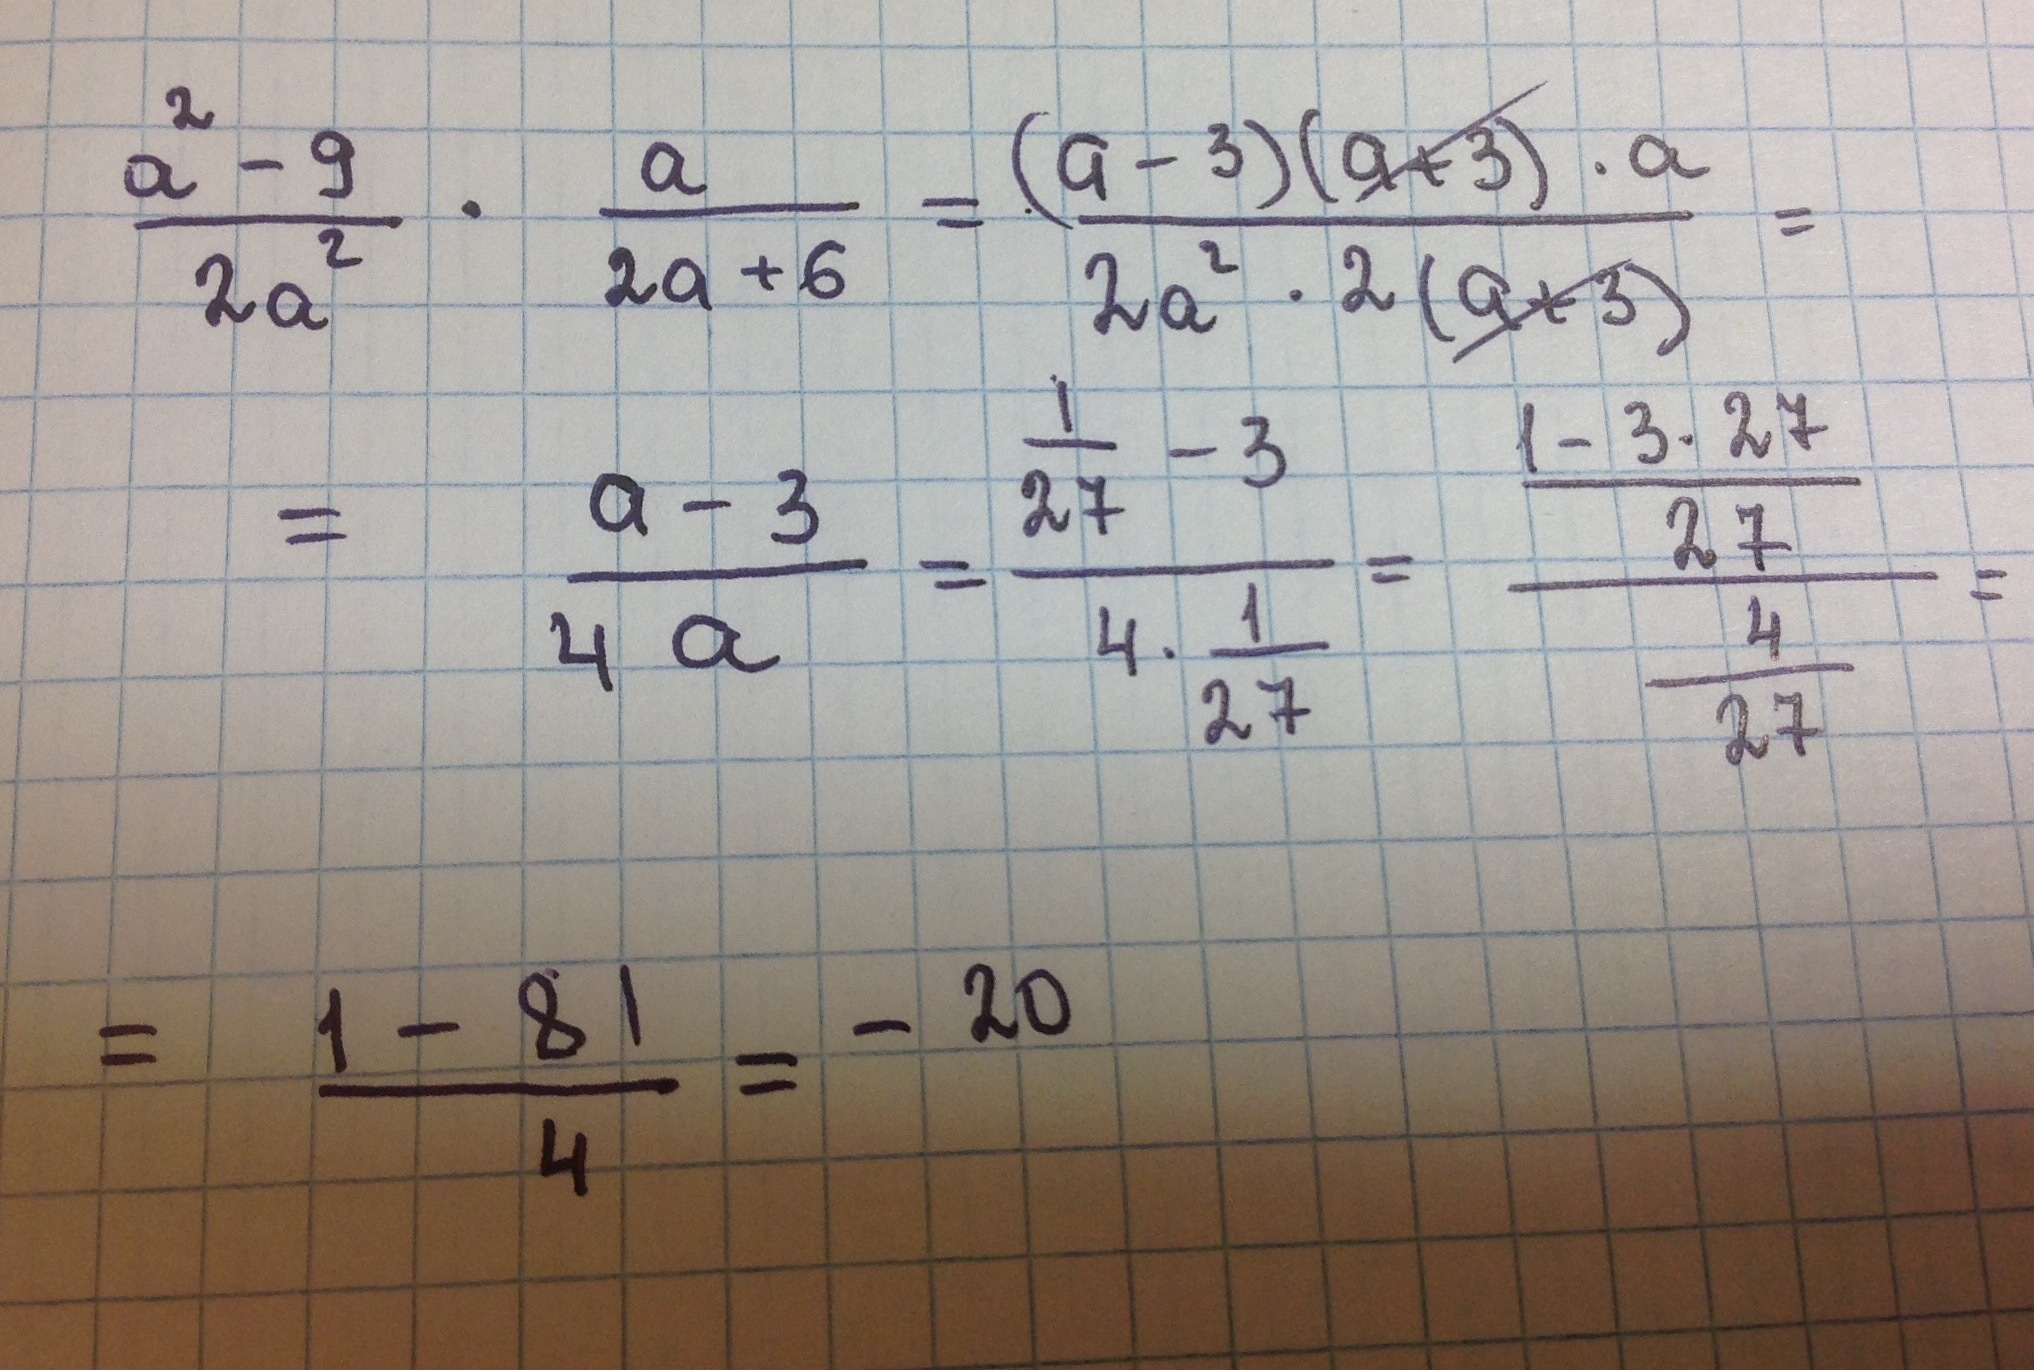 (a² - 9)/(2a²) · a/(2a + 6) = ((a - 3)(a + 3) · a)/(2a² · 2(a + 3)) =
= (a - 3)/(4a) = (1/27 - 3)/(4 · 1/27) = ((1 - 3 · 27)/27)/(4/27) =
= (1 - 81)/4 = - 20